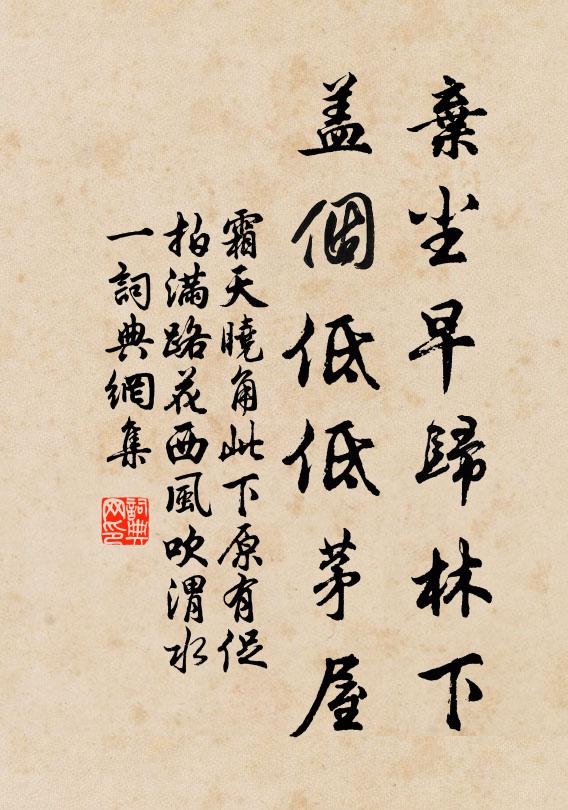 棄尘早歸林下
蓋個低低茅屋
霜天曉角此下原有促
拍滿路花西風吹渭水
一詞典網集
詞典
网印